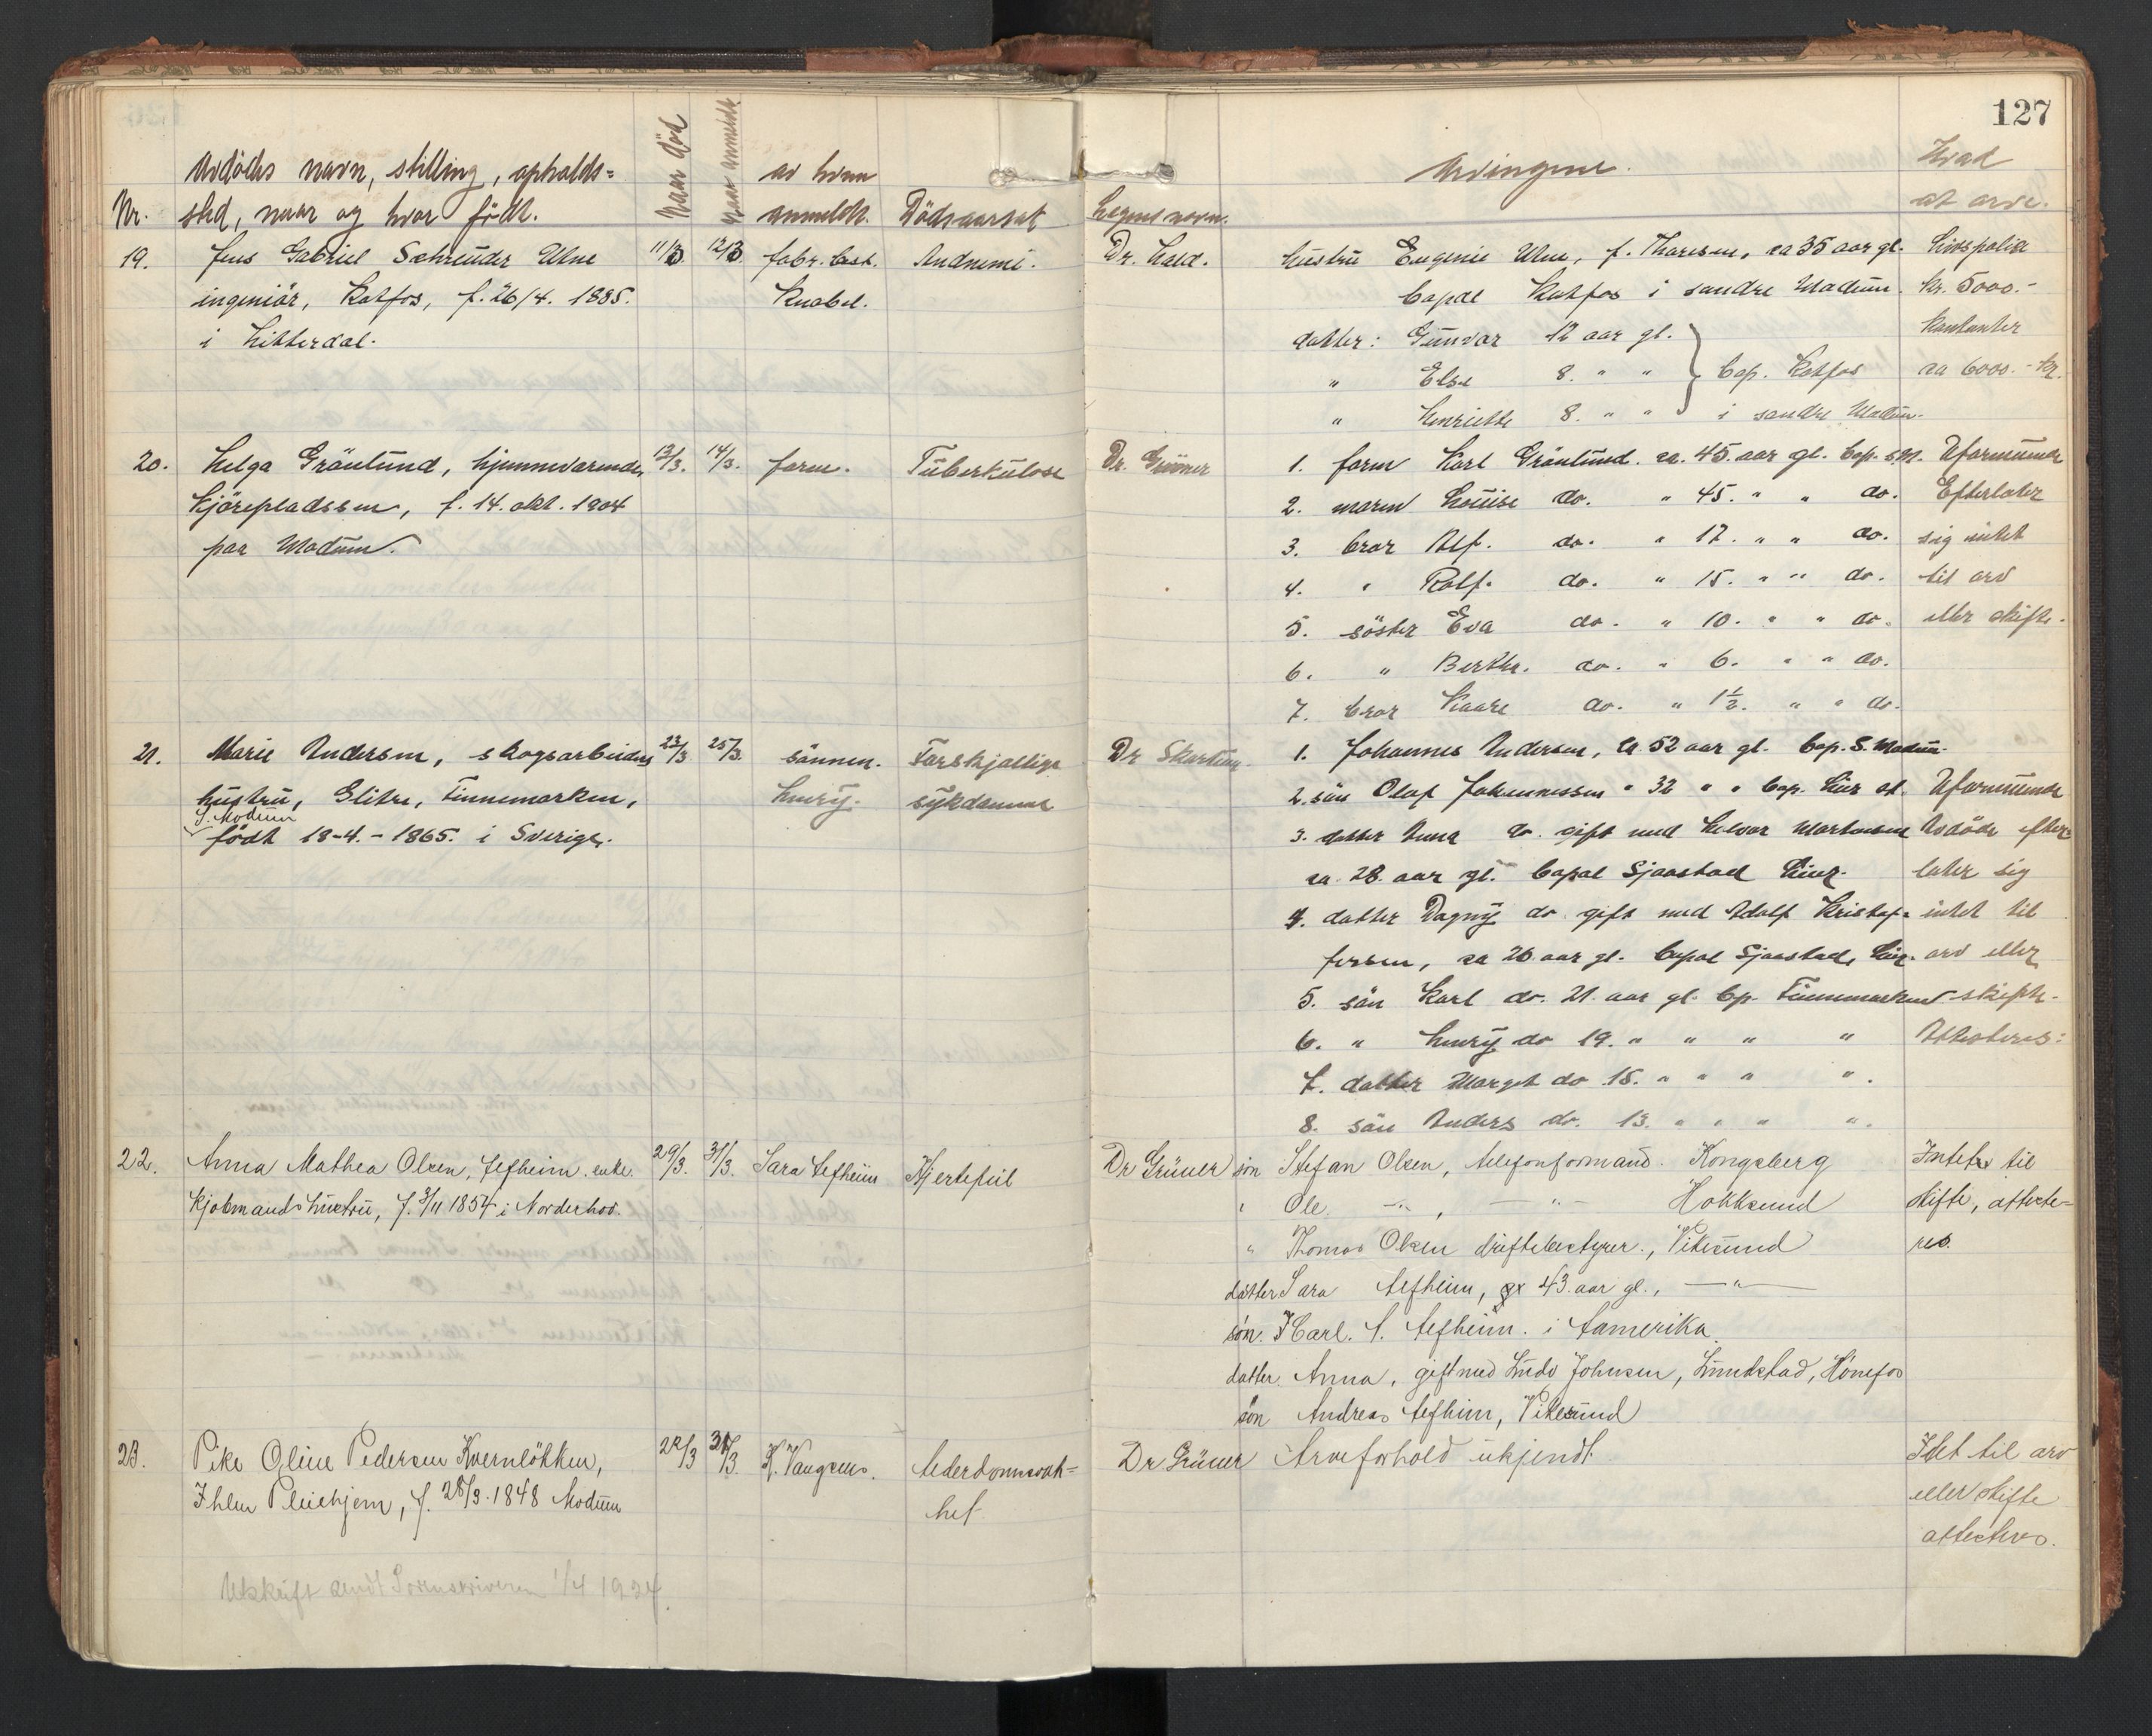 127
Nr.
Avdödes navn, stilling, opholds=
sted, naar og hvor födt.
Naar död
Naar anmeldt
av hvem
anmeldt.
Dödsaarsak
Lægens navn.
Arvingene.
Hvad
at arve.
19.
Jens Gabriel Schreüder Ulne
ingeniör, Katfos, f. 26/4. 1885.
i Hitterdal.
11/3.
12/3.
fabr. best.
Knabel.
Andnemi.
Dr. Hald.
hüstrü Eugenie Ulne, f. Thoresen, ca 35 aar gl.
bopæl Katfos i söndre Modüm.
datter: Günvor 12 aar gl.
" Else 8. " "
" Henriette 8. " "
bop. Katfos
i söndre Modüm.
Livspolise
kr. 5000.-
kontanter
ca 6000.- kr.
20.
Helga Grönlünd, hjemmeværende,
Kjörepladssen, f. 14. okt. 1904
paa Modüm.
12/3.
14/3.
faren.
Tüberkülose
Dr. Grüner
1. faren Karl Grönlünd. ca. 45. aar gl. bop. s.M.
2. moren Loüise do. " 45. " " do.
3. bror Alf. do. " 17. " " do.
4. " Rolf. do. " 15. " " do.
5. söster Eva do. " 10. " " do.
6. " Berthe. do. " 6. " " do.
7. bror Kaare do. " 1½. " " do.
Uformüende
Efterlater
sig intet
til arv
eller skifte.
21.
Marie Andersen, skogsarbeiders
hüstrü, Glitre, Finnemarken,
S. Modüm
födt 18-4.-1865. i Sverige.
23/3
25/3.
sönnen.
Henrÿ.
Forskjellige
sÿkdomme
Dr Skartüm.
1. Johannes Andersen, ca. 52 aar gl. bop. S. Modüm.
2. sön Olaf Johannessen " 32 " " bop. Lier st.
3. datter Anna do. gift med Halvor Martinsen
ca. 28. aar gl. bopæl Sjaastad Lier.
4. datter Dagnÿ do. gift med Adolf Kristof=
fersen, ca 26 aar gl. bopæl Sjaastad, Lier.
5. sön Karl do. 21. aar gl. bp. Finnemarken
6. " Henrÿ do 19. " " " "
7. datter Margit do 15. " " " ".
8. sön Anders do. 13. " " " ".
Uformüende
Avdöde efter=
later sig
intet til
arv eller
skifte.
Attesteres:
22.
Anna Mathea Olsen, Aefheim. enke.
Kjøbmands hüstrü, f. 3/11 1854 i Norderhov.
29/3.
31/3.
Sara Aefheim
Hjertefeil
Dr Grüner
søn Stefan Olsen, telefonformand. Kongsberg
" Ole. -"-, -"- Hokksund
" Thomas Olsen driftsbestyrer., Vikesünd
datter Sara Aefheim, 43. aar gl., -"-
søn. Karl. A. Aefheim. i Aamerika.
datter. Anna, gift med Lüdv Johnsen, Lündstad, Hønefos
søn Andreas Aefheim, Vikesünd
Intet til
skifte, atteste=
res.
23.
Pike Oline Pedersen Kvernlökken,
Ihlen Pleiehjem, f. 28/3. 1848 Modüm
28/3
31/3.
K. Vangsnes.
Alderdomssvak=
het
Dr Grüner
Arveforhold ükjendt
Idet til arv
eller skifte
attesteres.
Utskrift sendt Sorenskriveren 1/4 1924.